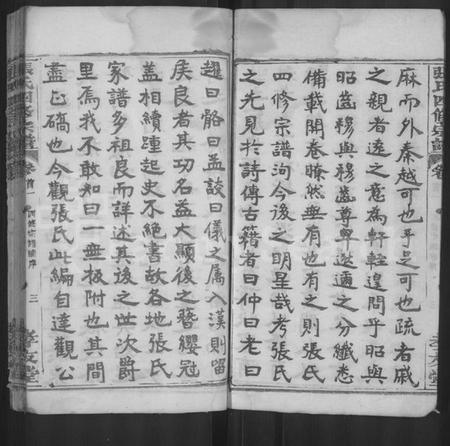 麻而外秦越可也手足可也疏者戚
之親者逺之意為軒輊遑問乎昭與
昭齒穆與穆齒尊卑逺邇之分纖悉
備載開卷瞭然無有也有之則張氏
四修宗譜洵今後之明星哉考張氏
之先見於詩傳古籍者曰仲曰老曰
趯曰骼曰孟談曰儀之属入漢則留
矦良者其功名益大顯後之簪纓冠
盖相續踵起史不絶書故各地張氏
家譜多祖良而詳述其後之世次爵
里焉我不敢知曰一無极附也其間
盡正确也今觀張氏此編自達觀公
張氏四修宗譜
卷首一
三
孝友堂